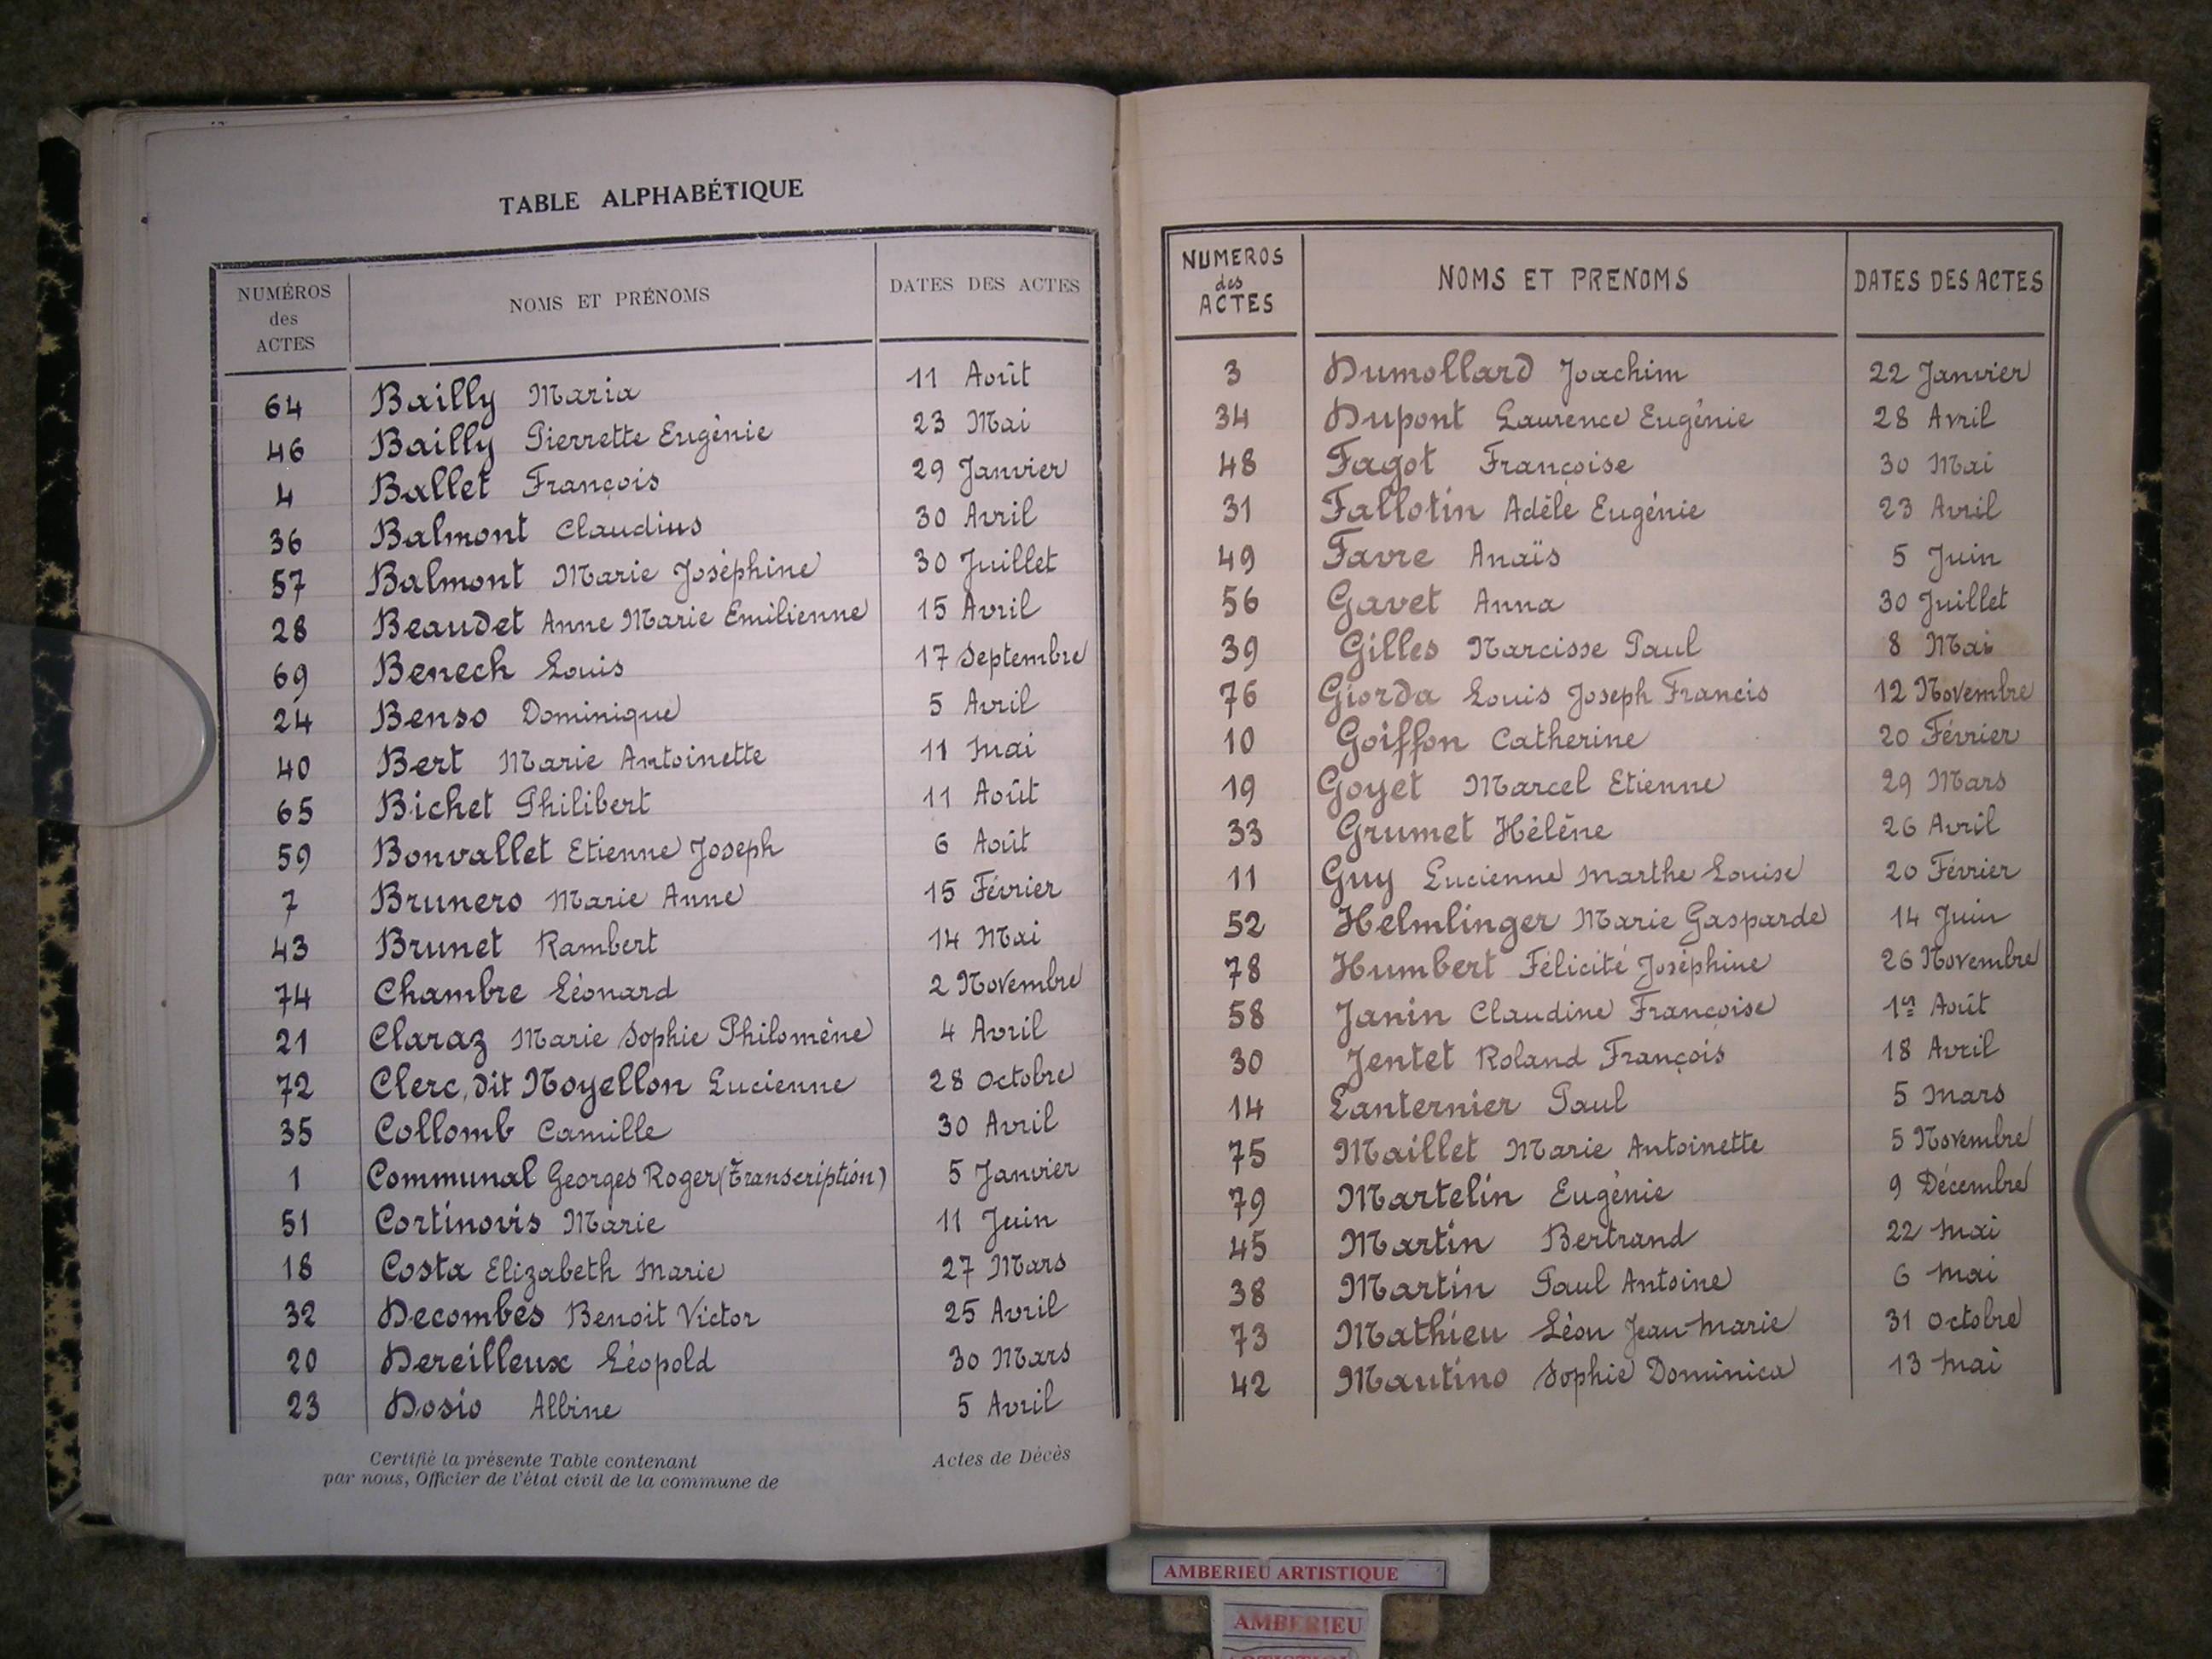 TABLE ALPHABÉTIQUE
NUMÉROS des ACTES NOMS ET PRÉNOMS DATES DES ACTES
64 Bailly Maria 11 Août
46 Bailly Pierrette Eugénie 23 Mai
4 Ballet François 29 Janvier
36 Balmont Claudius 30 Avril
57 Balmont Marie Joséphine 30 Juillet
28 Beaudet Anne Marie Emilienne 15 Avril
69 Benech Louis 17 Septembre
24 Benso Dominique 5 Avril
40 Bert Marie Antoinette 11 Mai
65 Bichet Philibert 11 Août
59 Bonvallet Etienne Joseph 6 Août
7 Brunero Marie Anne 15 Février
43 Brunet Rambert 14 Mai
74 Chambre Léonard 2 Novembre
21 Claraz Marie Sophie Philomène 4 Avril
72 Clerc, dit Noyellon Lucienne 28 Octobre
35 Collomb Camille 30 Avril
1 Communal Georges Roger (Transcription) 5 Janvier
51 Cortinovis Marie 11 Juin
18 Costa Elizabeth Marie 27 Mars
32 Decombes Benoit Victor 25 Avril
20 Dereilleux Léopold 30 Mars
23 Dosio Albine 5 Avril
Certifié la présente Table contenant Actes de Décès
par nous, Officier de l'état civil de la commune de
NUMEROS des ACTES NOMS ET PRENOMS DATES DES ACTES
3 Dumollard Joachim 22 Janvier
34 Dupont Laurence Eugénie 28 Avril
48 Fagot Françoise 30 Mai
31 Fallotin Adèle Eugénie 23 Avril
49 Favre Anaïs 5 Juin
56 Gavet Anna 30 Juillet
39 Gilles Narcisse Paul 8 Mai
76 Giorda Louis Joseph Francis 12 Novembre
10 Goiffon Catherine 20 Février
19 Goyet Marcel Etienne 29 Mars
33 Grumet Hélène 26 Avril
11 Guy Lucienne Marthe Louise 20 Février
52 Helmlinger Marie Gasparde 14 Juin
78 Humbert Félicité Joséphine 26 Novembre
58 Janin Claudine Françoise 1er Août
30 Jentet Roland François 18 Avril
14 Lanternier Paul 5 Mars
75 Maillet Marie Antoinette 5 Novembre
79 Martelin Eugénie 9 Décembre
45 Martin Bertrand 22 Mai
38 Martin Paul Antoine 6 Mai
73 Mathieu Léon Jean-Marie 31 Octobre
42 Mautino Sophie Dominica 13 Mai
AMBERIEU ARTISTIQUE
AMBERIEU